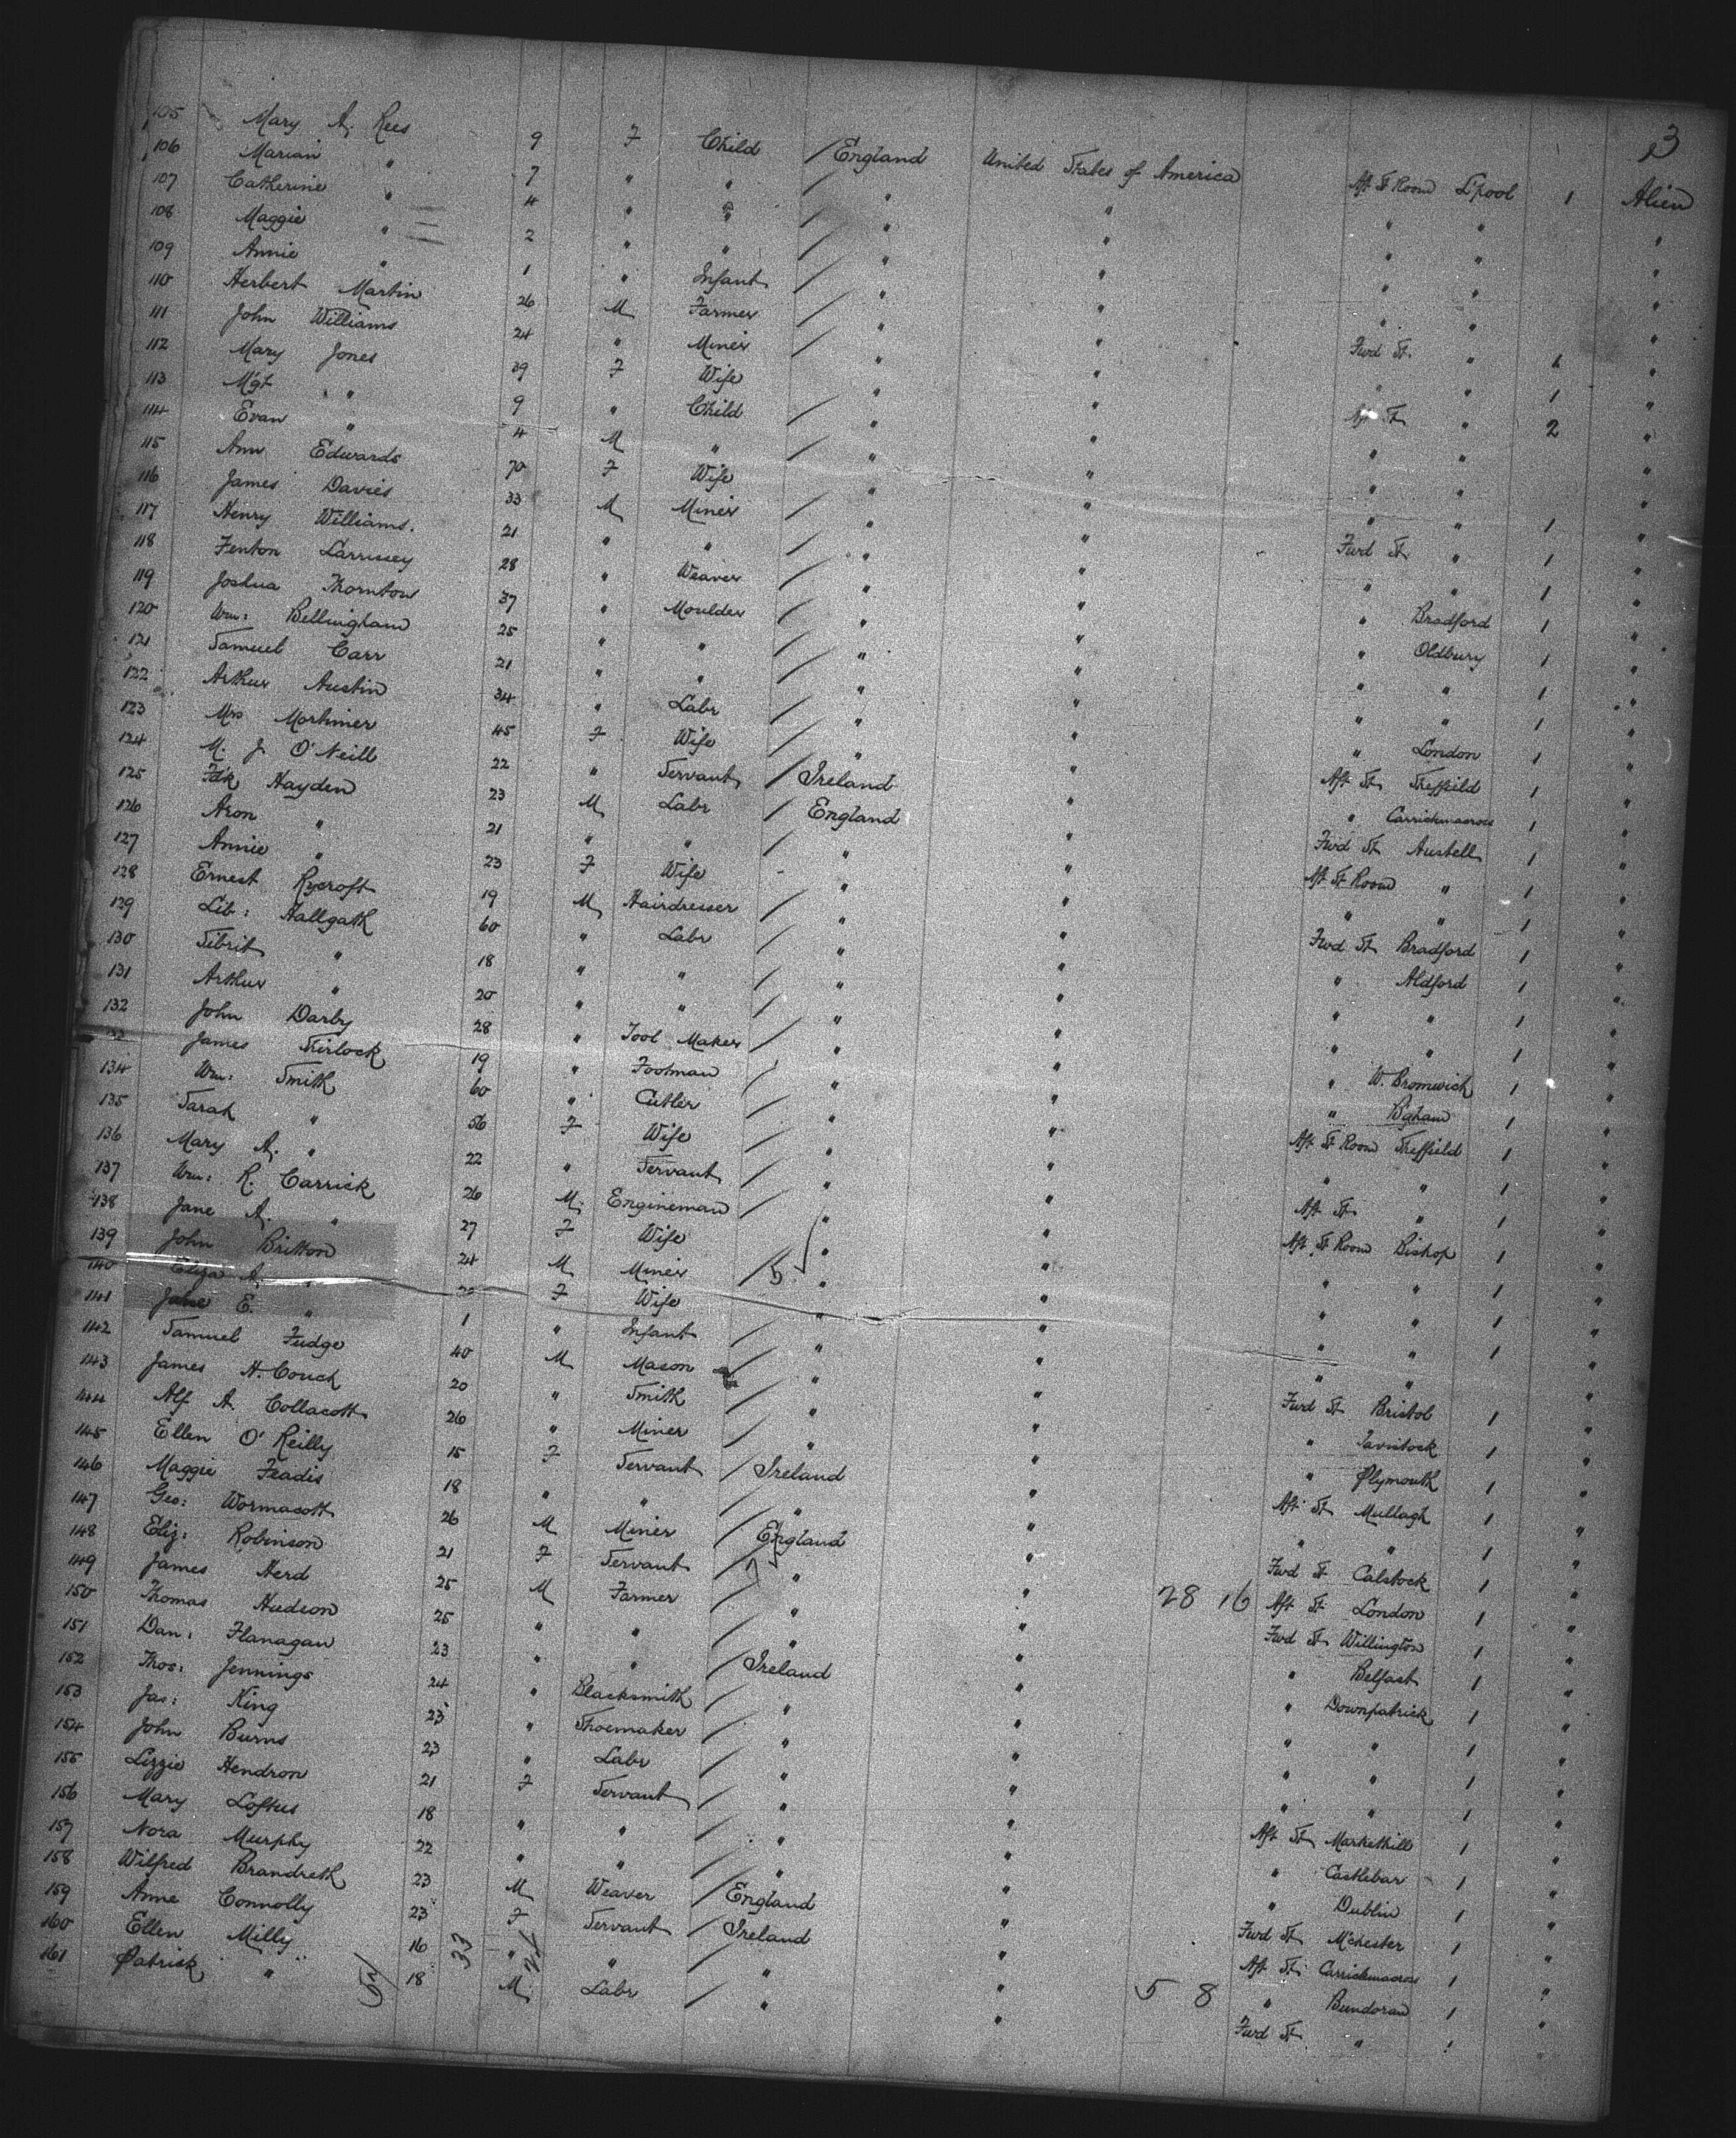 3
105 Mary A. Rees 9 F Child / England United States of America Aft St Room L'pool 1 Alien
106 Marian " 7 " " / " " " " "
107 Catherine " 4 " " / " " " " "
108 Maggie " 2 " " / " " " " "
109 Annie " 1 " Infant / " " " " "
110 Herbert Martin 26 M Farmer / " " Fwd St " 1 "
111 John Williams 24 " Miner / " " " " 1 "
112 Mary Jones 39 F Wife " " Aft St " 2 "
113 Mgt " 9 " Child / " " " " "
114 Evan " 4 M " / " " " " "
115 Ann Edwards 70 F Wife " " " " 1 "
116 James Davies 33 M Miner / " " Fwd St " 1 "
117 Henry Williams. 21 " " / " " " " 1 "
118 Fenton Larrissey 28 " Weaver / " " " Bradford 1 "
119 Joshua Thornton 37 " Moulder / " " " Oldbury 1 "
120 Wm: Bellingham 25 " " / " " " " 1 "
121 Samuel Carr 21 " " / " " " " 1 "
122 Arthur Austin 34 " Labr / " " " London 1 "
123 Mrs Mortimer 45 F Wife / " " Aft St Sheffield 1 "
124 M. J. O'Neill 22 " Servant / Ireland " " Carrickmacross 1 "
125 Fdk Hayden 23 M Labr / England " Fwd St Austell 1 "
126 Aron " 21 " " / " " Aft St Room " 1 "
127 Annie " 23 F Wife " " " " 1 "
128 Ernest Rycroft 19 M Hairdresser / " " Fwd St Bradford 1 "
129 Lib: Hallgath 60 " Labr / " " " Aldford 1 "
130 Sibrit " 18 " " / " " " " 1 "
131 Arthur " 20 " " / " " " " 1 "
132 John Darby 28 " Tool Maker / " " " W. Bromwich 1 "
133 James Shirlock 19 " Footman / " " " B'gham 1 "
134 Wm: Smith 60 " Cutler / " " Aft St Room Sheffield 1 "
135 Sarah " 56 F Wife / " " " " 1 "
136 Mary A. " 22 " Servant / " " Aft St " 1 "
137 Wm: R. Carrick 26 M Engineman / " " Aft St Room Bishop 1 "
138 Jane A. " 27 F Wife " " " " 1 "
139 John Britton 24 M Miner / 5 " " " " 1 "
140 Eliza A. " F Wife " " " " 1 "
141 Jane E. " 1 " Infant / " " " " "
142 Samuel Fudge 40 M Mason / " " Fwd St Bristol 1 "
143 James H. Couch 20 " Smith / " " " Tavistock 1 "
144 Alf A. Collacott 26 " Miner / " " " Plymouth 1 "
145 Ellen O'Reilly 15 F Servant / Ireland " Aft St Mullagh 1 "
146 Maggie Feadis 18 " " / " " " " 1 "
147 Geo: Wormacott 26 M Miner / England " Fwd St Calstock 1 "
148 Eliz: Robinson 21 F Servant / " " 28 16 Aft St London 1 "
149 James Herd 25 M Farmer / " " Fwd St Willington 1 "
150 Thomas Hudson 25 " " / " " " Belfast 1 "
151 Dan: Flanagan 23 " " / Ireland " " Downpatrick 1 "
152 Thos: Jennings 24 " Blacksmith / " " " " 1 "
153 Jas: King 23 " Shoemaker / " " " " 1 "
154 John Burns 23 " Labr / " " " " 1 "
155 Lizzie Hendron 21 F Servant / " " Aft St Markethill 1 "
156 Mary Loftus 18 " " / " " " Castlebar 1 "
157 Nora Murphy 22 " " / " " " Dublin 1 "
158 Wilfred Brandreth 23 M Weaver / England " Fwd St M'chester 1 "
159 Anne Connolly 23 F Servant / Ireland " Aft St Carrickmacross 1 "
160 Ellen Milly 16 " " / " " 5 8 " Bundoran 1 "
161 Patrick " 18 M Labr / " " Fwd St " 1 "
33